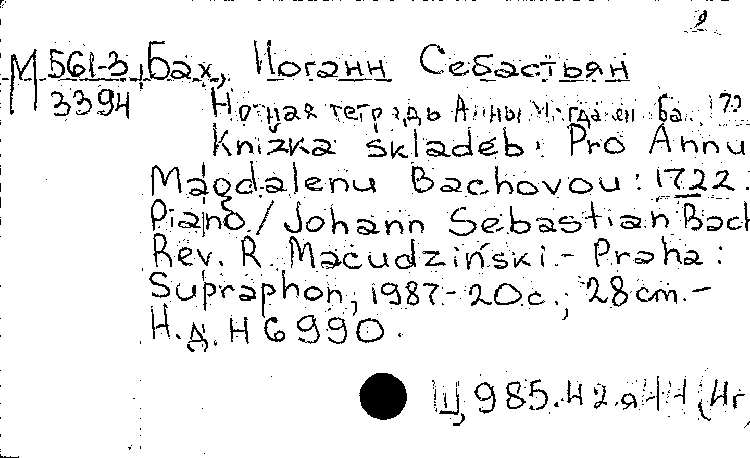 2
М 561-3 Бах, Иоганн Себастьян
3394 Нотная тетрадь Анны Магдален Ба 172
Knížka skladeb: Pro Annu
Magdalenu Bachovou: 1722:
Piano / Johann Sebastian Bach
Rev. R. Macudziński. - Praha:
Supraphon, 1987. - 20 с.; 28 cm. -
Н.д. H 6990.
Щ 985.42я44 (4г